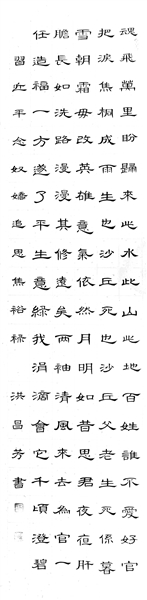 魂飛萬里盼歸來此水此山此地百姓誰不愛好官
把淚焦桐成雨生也沙丘死也沙丘父老生死係暮
雪朝霜毋改英雄意氣依然月明如昔思君夜夜肝
膽長如洗路漫漫其修遠矣兩袖清風來去為官一
任造福一方遂了平生意綠我涓滴會它千頃澄碧
習近平念奴嬌追思焦裕祿 洪昌芳書